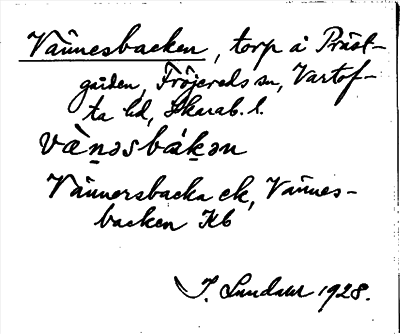 Vännesbacken, torp å Präst-
gården, Fröjereds sn, Vartof-
ta hd, Skarab. l.
vànəsbákən
Vännersbacka ek, Vännes-
backen Kb
J. Lundahl 1928.